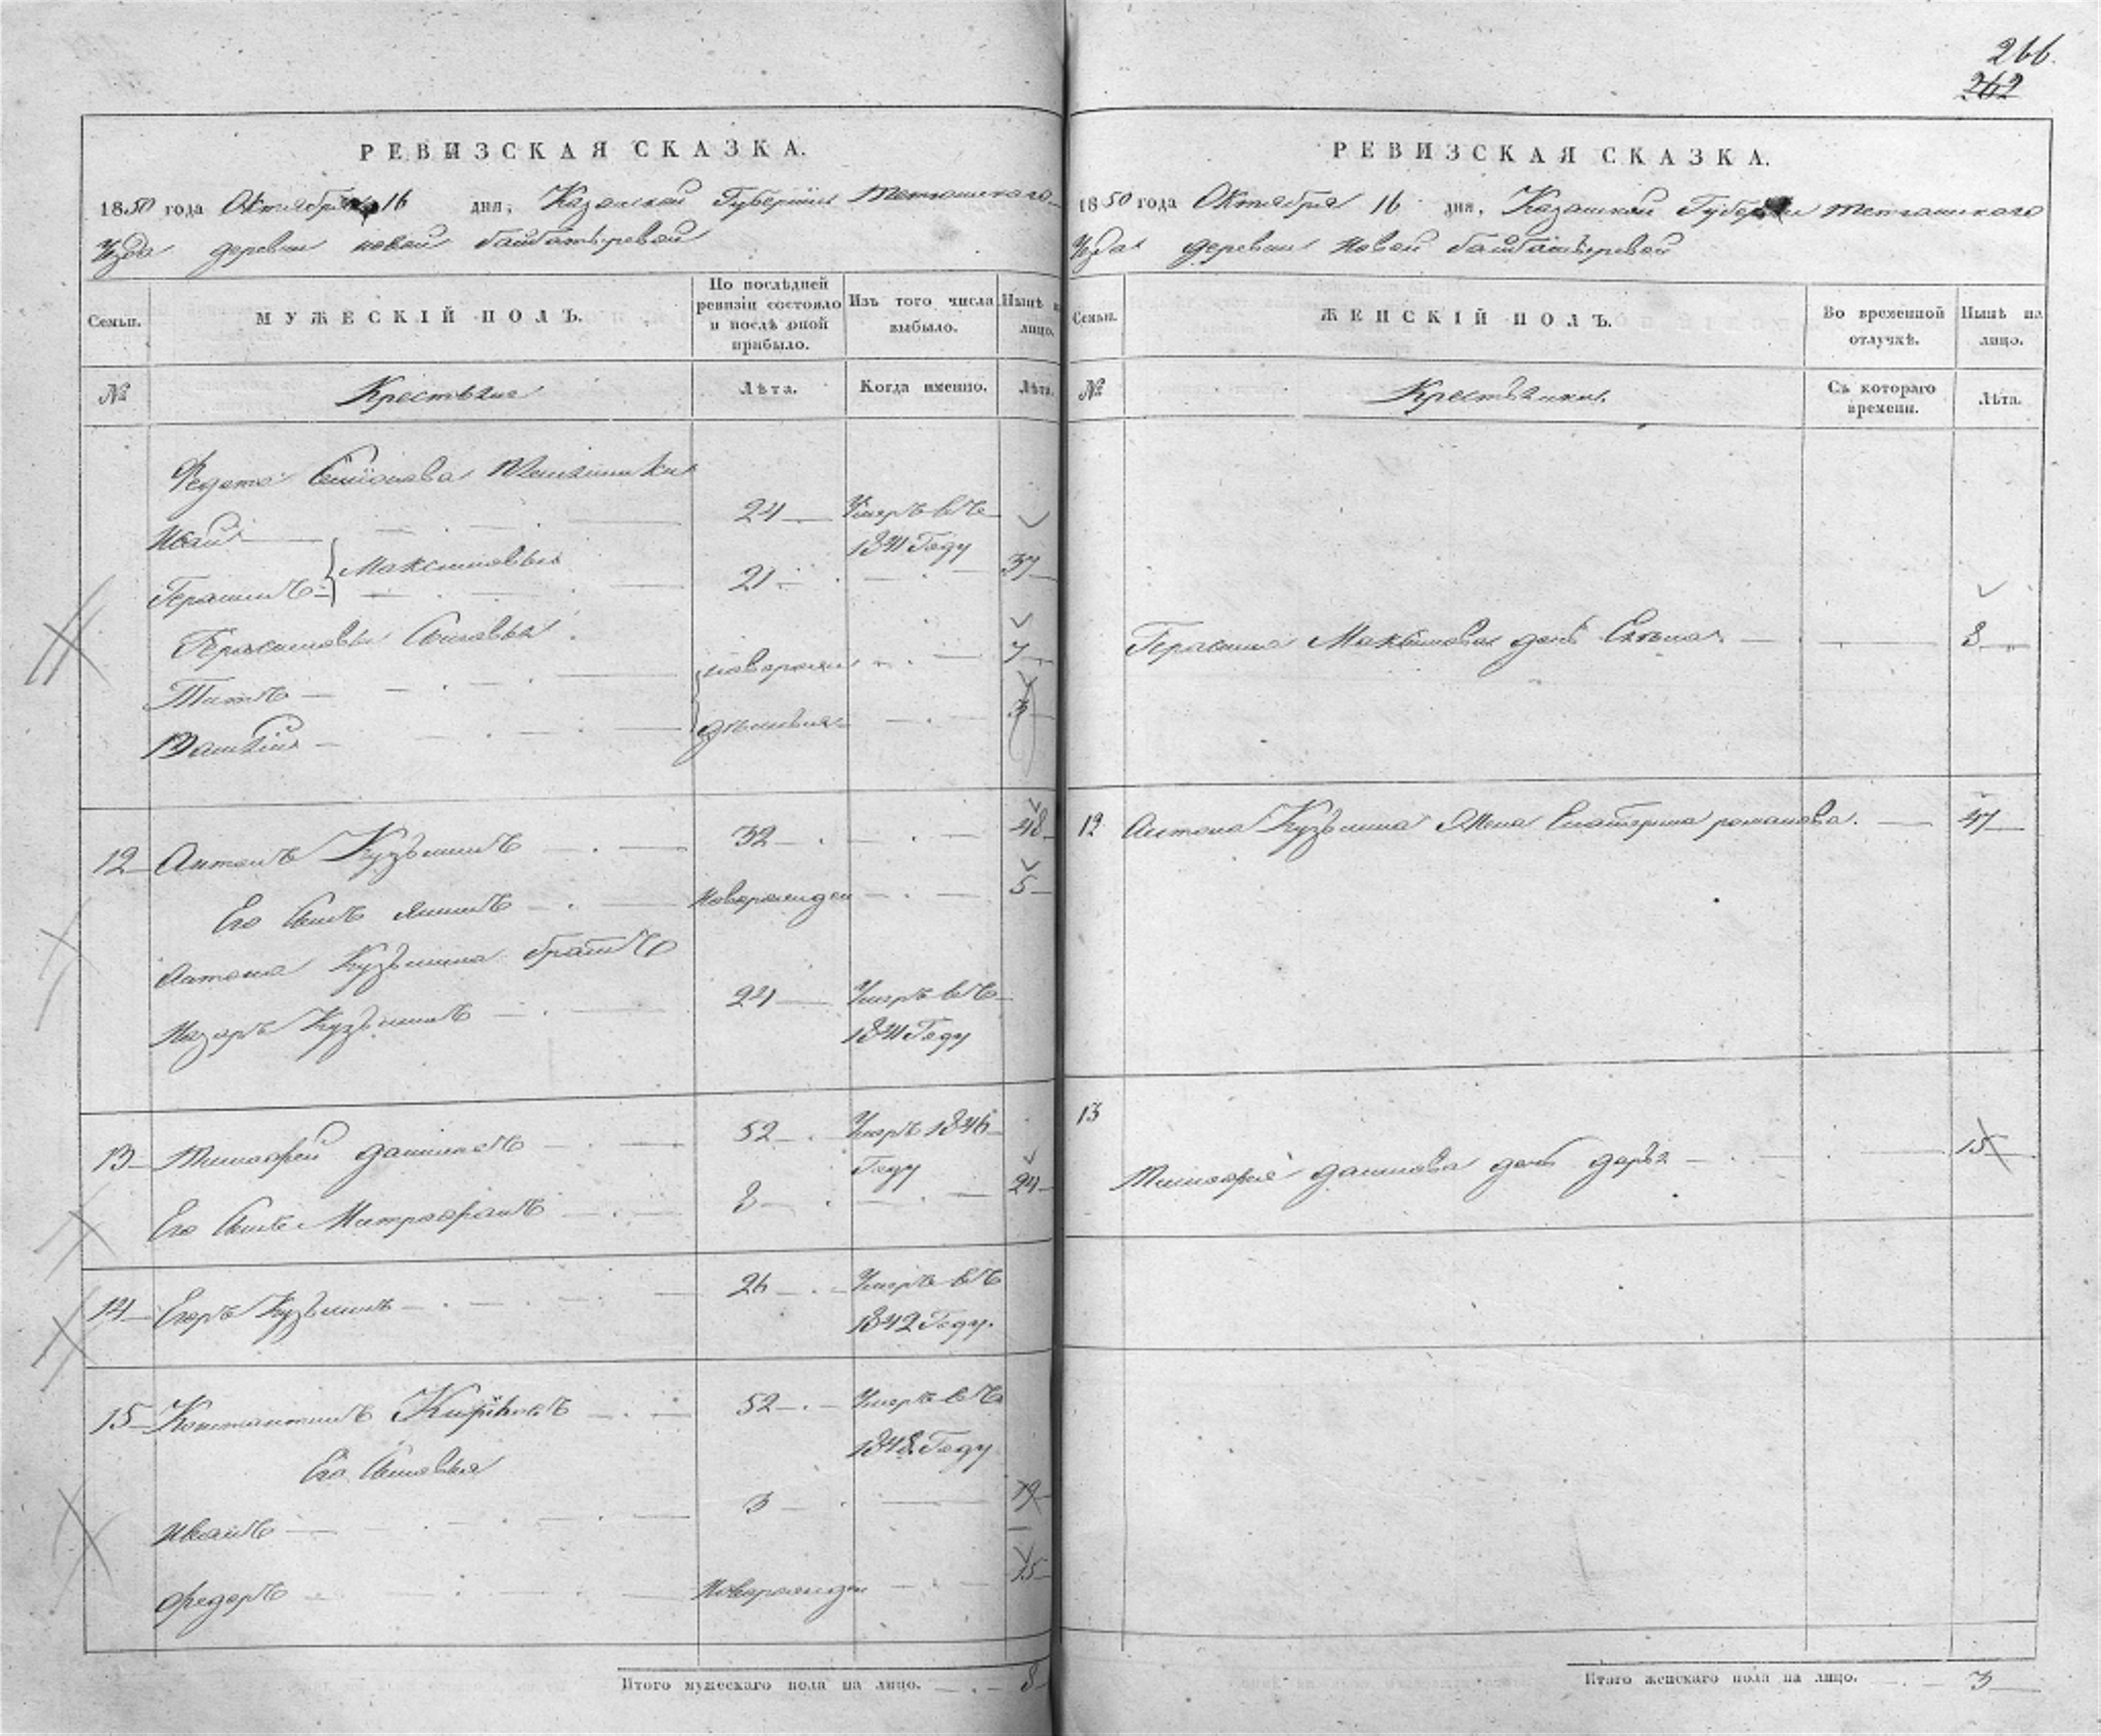 266.
262
РЕВИЗСКАЯ СКАЗКА.
1850 года Октября 16 дня, Казанской Губернии Тетюшскаго
Уезда деревни новой байбатыревой
Семьи.
МУЖЕСКІЙ ПОЛЪ.
По послѣдней ревизіи состояло и послѣ оной прибыло.
Изъ того числа выбыло.
Нынѣ на лицо.
№
Крестьяне
Лѣта.
Когда именно.
Лѣта.
Федота Семионова Племянники
Иван 24 Умеръ въ 1841 Году
Герасимъ Максимовы 21 37
Герасимовы Сыновья
Титъ новорожден 7
Василий 3
12 Антонъ Кузьминъ 32 48
Его Сынъ новорожден 5
Антона Кузьмина братъ
Назаръ Кузьминъ 24 Умеръ въ 1841 Году
13 Тимофей даниловъ 52 Умеръ 1846 Году
Его Сынъ Митрофанъ 8 24
14 Егоръ Кузьминъ 26 Умеръ въ 1842 Году.
15 Константинъ 52 Умеръ въ 1848 Году
Его Сыновья
Иванъ 3 19
Федоръ Новорожден 15
Итого мужескаго пола на лицо. 8
РЕВИЗСКАЯ СКАЗКА.
1850 года Октября 16 дня, Казанской Губернии Тетюшскаго
Уезда деревни Новой байбатыревой
Семьи.
ЖЕНСКІЙ ПОЛЪ.
Во временной отлучкѣ.
Нынѣ на лицо.
№
Крестьянки.
Съ котораго времени.
Лѣта.
Герасима Максимова дочь Елена 8
12 Антона Кузьмина Жена Екатерина романова. 47
13
Тимофея данилова дочь дарья 15
Итого женскаго пола на лицо. 3